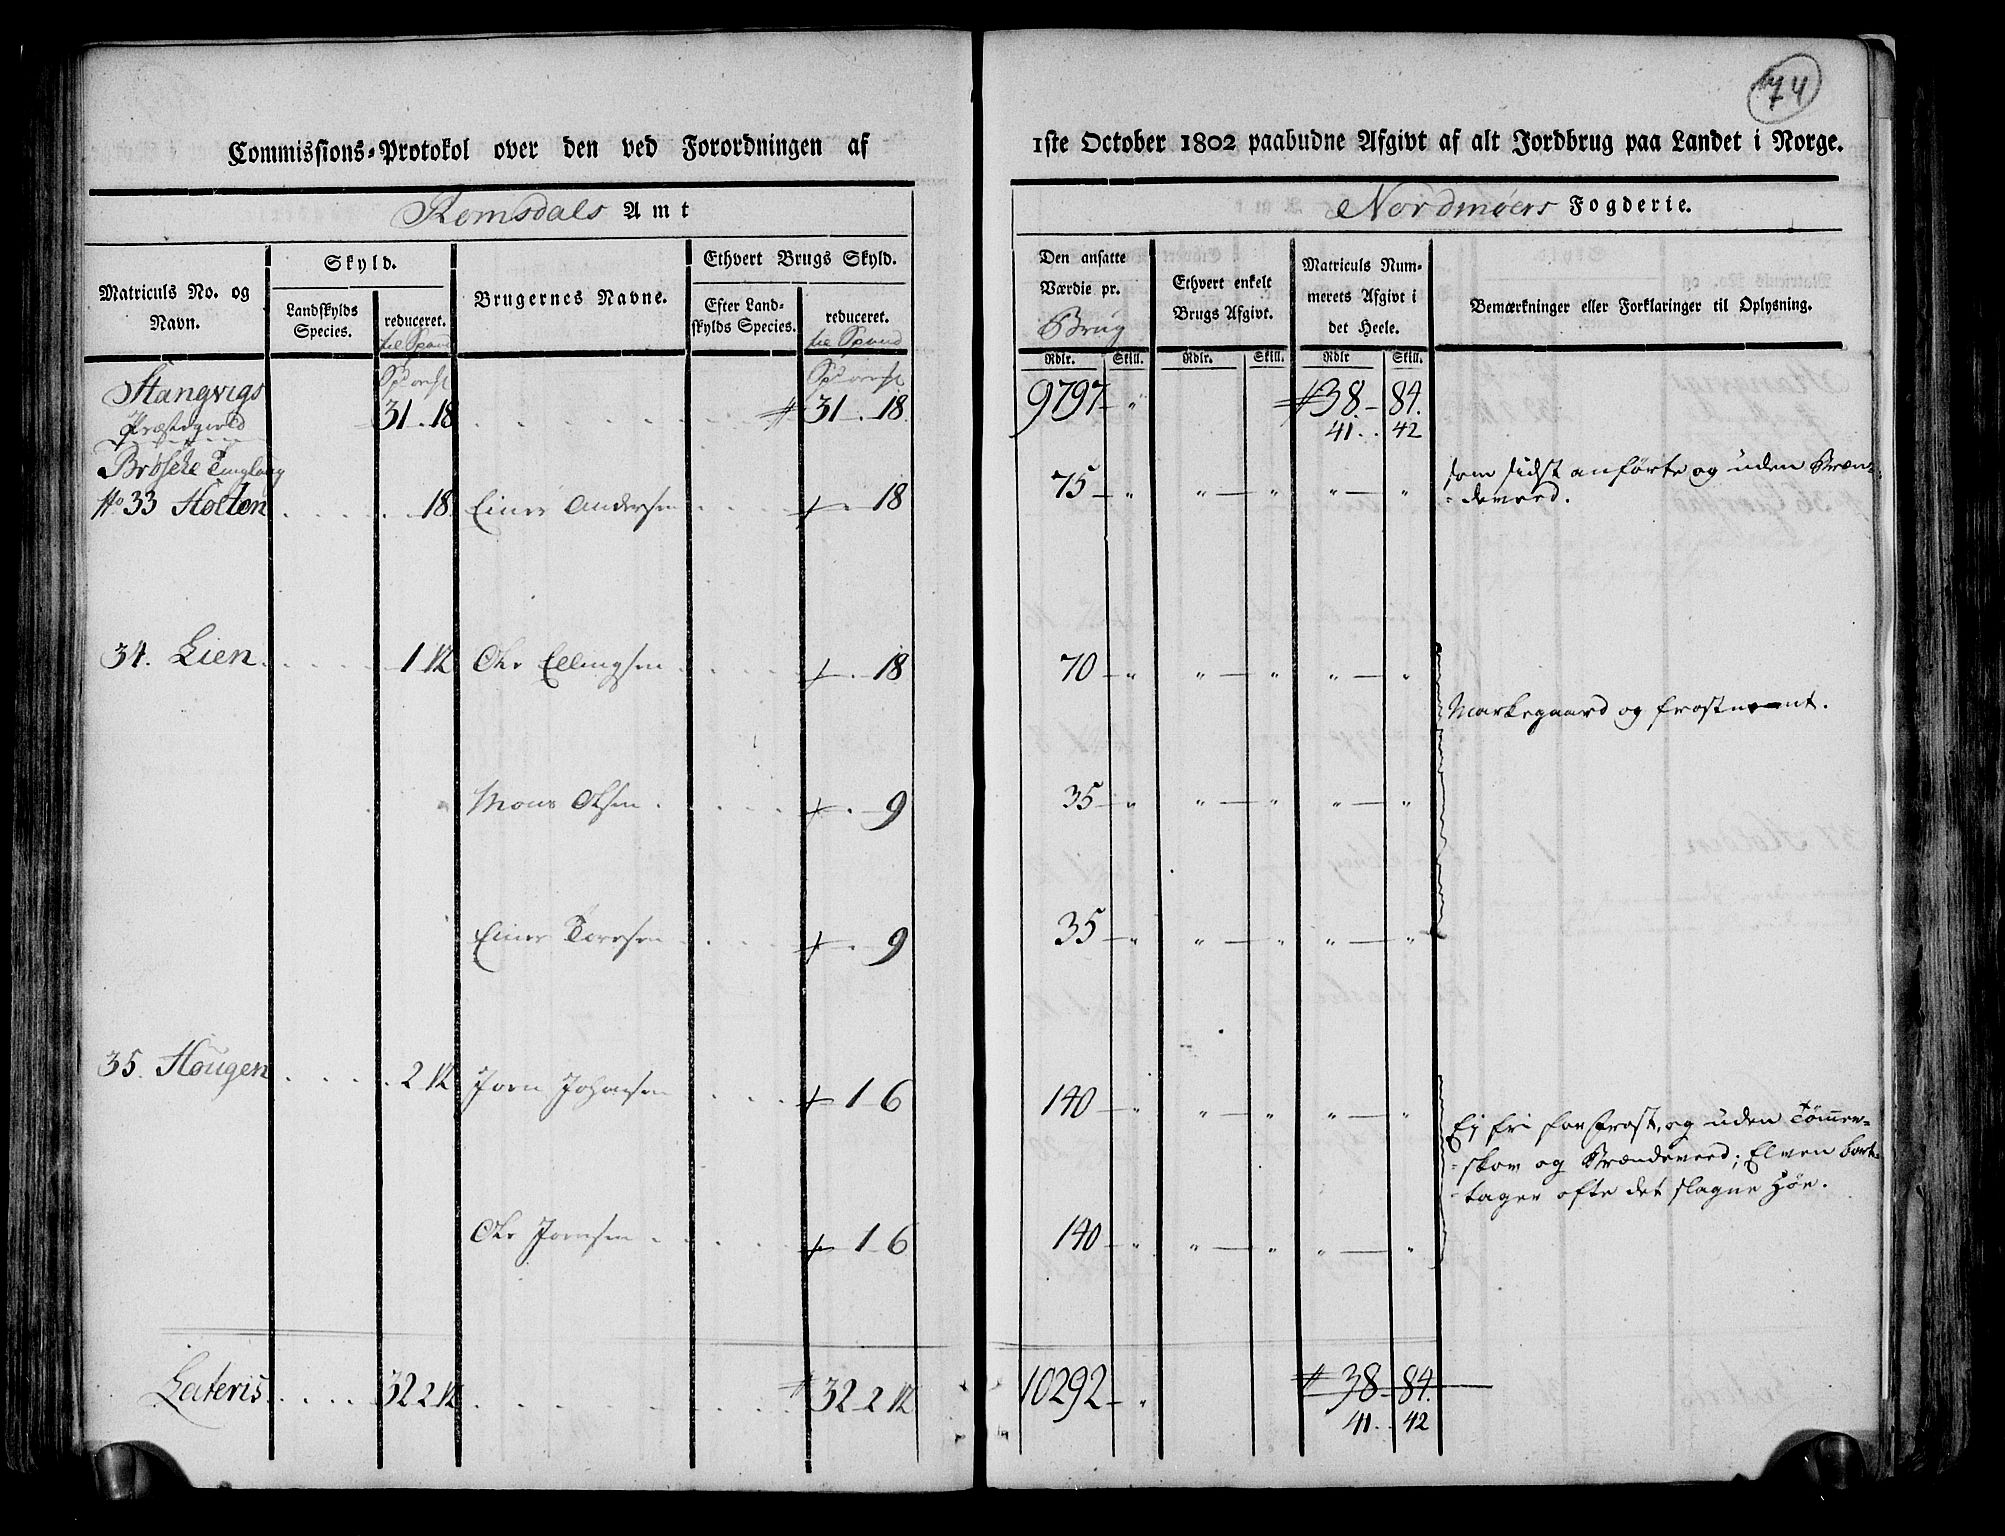 74
Commissions-Protokol over den ved Forordningen af 1ste October 1802 paabudne Afgivt af alt Jordbrug paa Landet i Norge.
Romsdals Amt
Nordmøers Fogderie.
Matriculs No. og Navn.
Skyld.
Landskylds Species.
reduceret.
til Spand
Brugernes Navne.
Ethvert Brugs Skyld.
Efter Landskylds Species.
reduceret.
til Spand
Den ansatte Værdie pr. Brug
Rdlr. Skill.
Ethvert enkelt Brugs Afgivt.
Rdlr. Skill.
Matriculs Nummerets Afgivt i det Heele.
Rdlr Skill.
Bemærkninger eller Forklaringer til Oplysning.
Stangvigs 31. 18 31. 18. 9797 - " 38. - 84.
Præstegield 41. . 42
Brøske Tinglaug
No 33 Holten 18. Einer Andersen 18 75 - " " - " " - " som sidst anførte og uden Bræn-
deveed.
34. Lien 1 12 Ole Ellingsen 18 70 - " " - " " - "
Markegaard og frostnæmt.
Mons Olsen 9 35 - " " - " " - "
Einer Toresen 9 35 - " " - " " - "
35. Hougen 2 12 Joen Johansen 1 - 6 140 - " " - " " - "
Ej fri for Frost, og uden Tømmer-
skov og Brændeveed; Elven bort-
tager ofte det slagne Høe.
Ole Joensen 1 - 6 140 - " " - " " - "
Lateris 32 2 12 32 - 2 12 10292 - " 38 - 84.
41. . 42